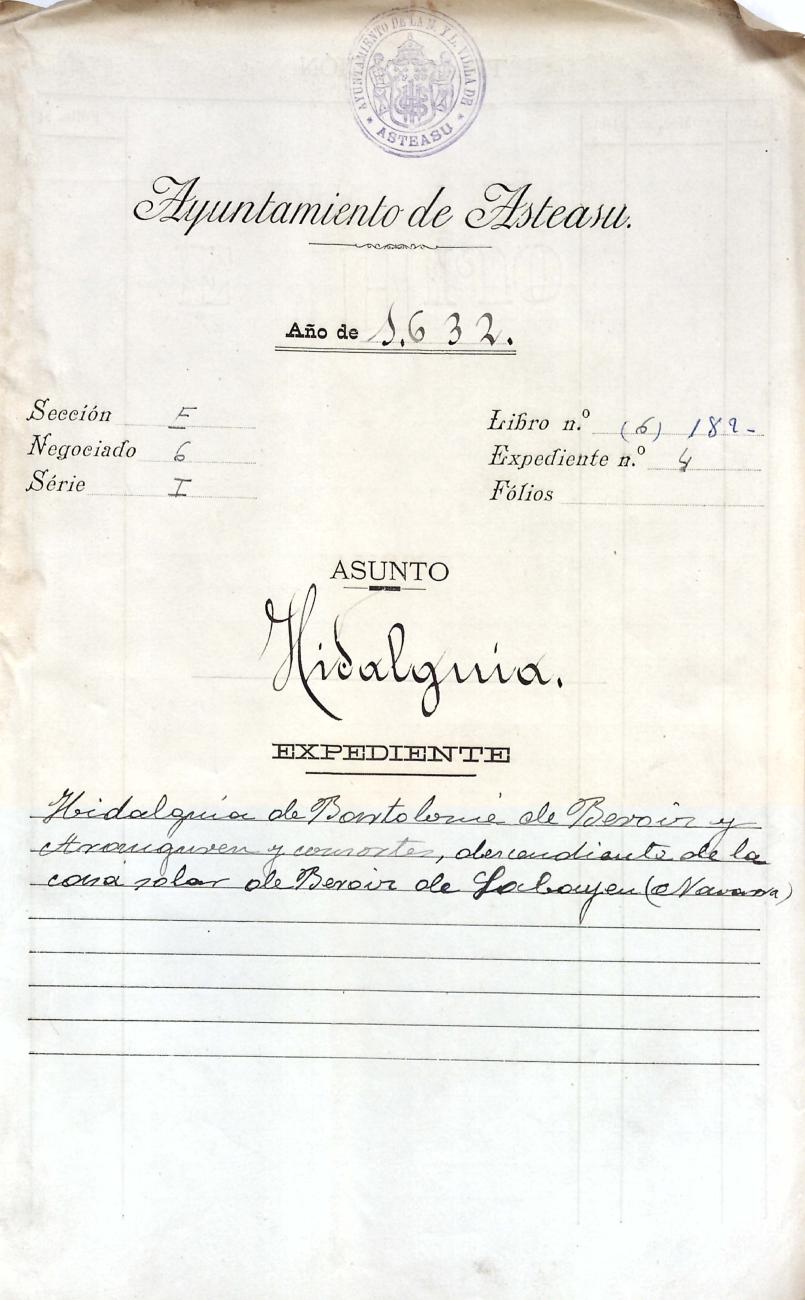 AYUNTAMIENTO DE LA N. Y L. VILLA DE
* ASTEASU *
Ayuntamiento de Asteasu.
Año de 1.632.
Sección E
Negociado 6
Série I
Libro n.º (6) 182-
Expediente n.º 4
Fólios
ASUNTO
Hidalguia.
EXPEDIENTE
Hidalguia de Bartolomé de Beroiz y
Aranguren y consortes, descendiente de la
casa solar de Beroiz de Labayen (Navarra)